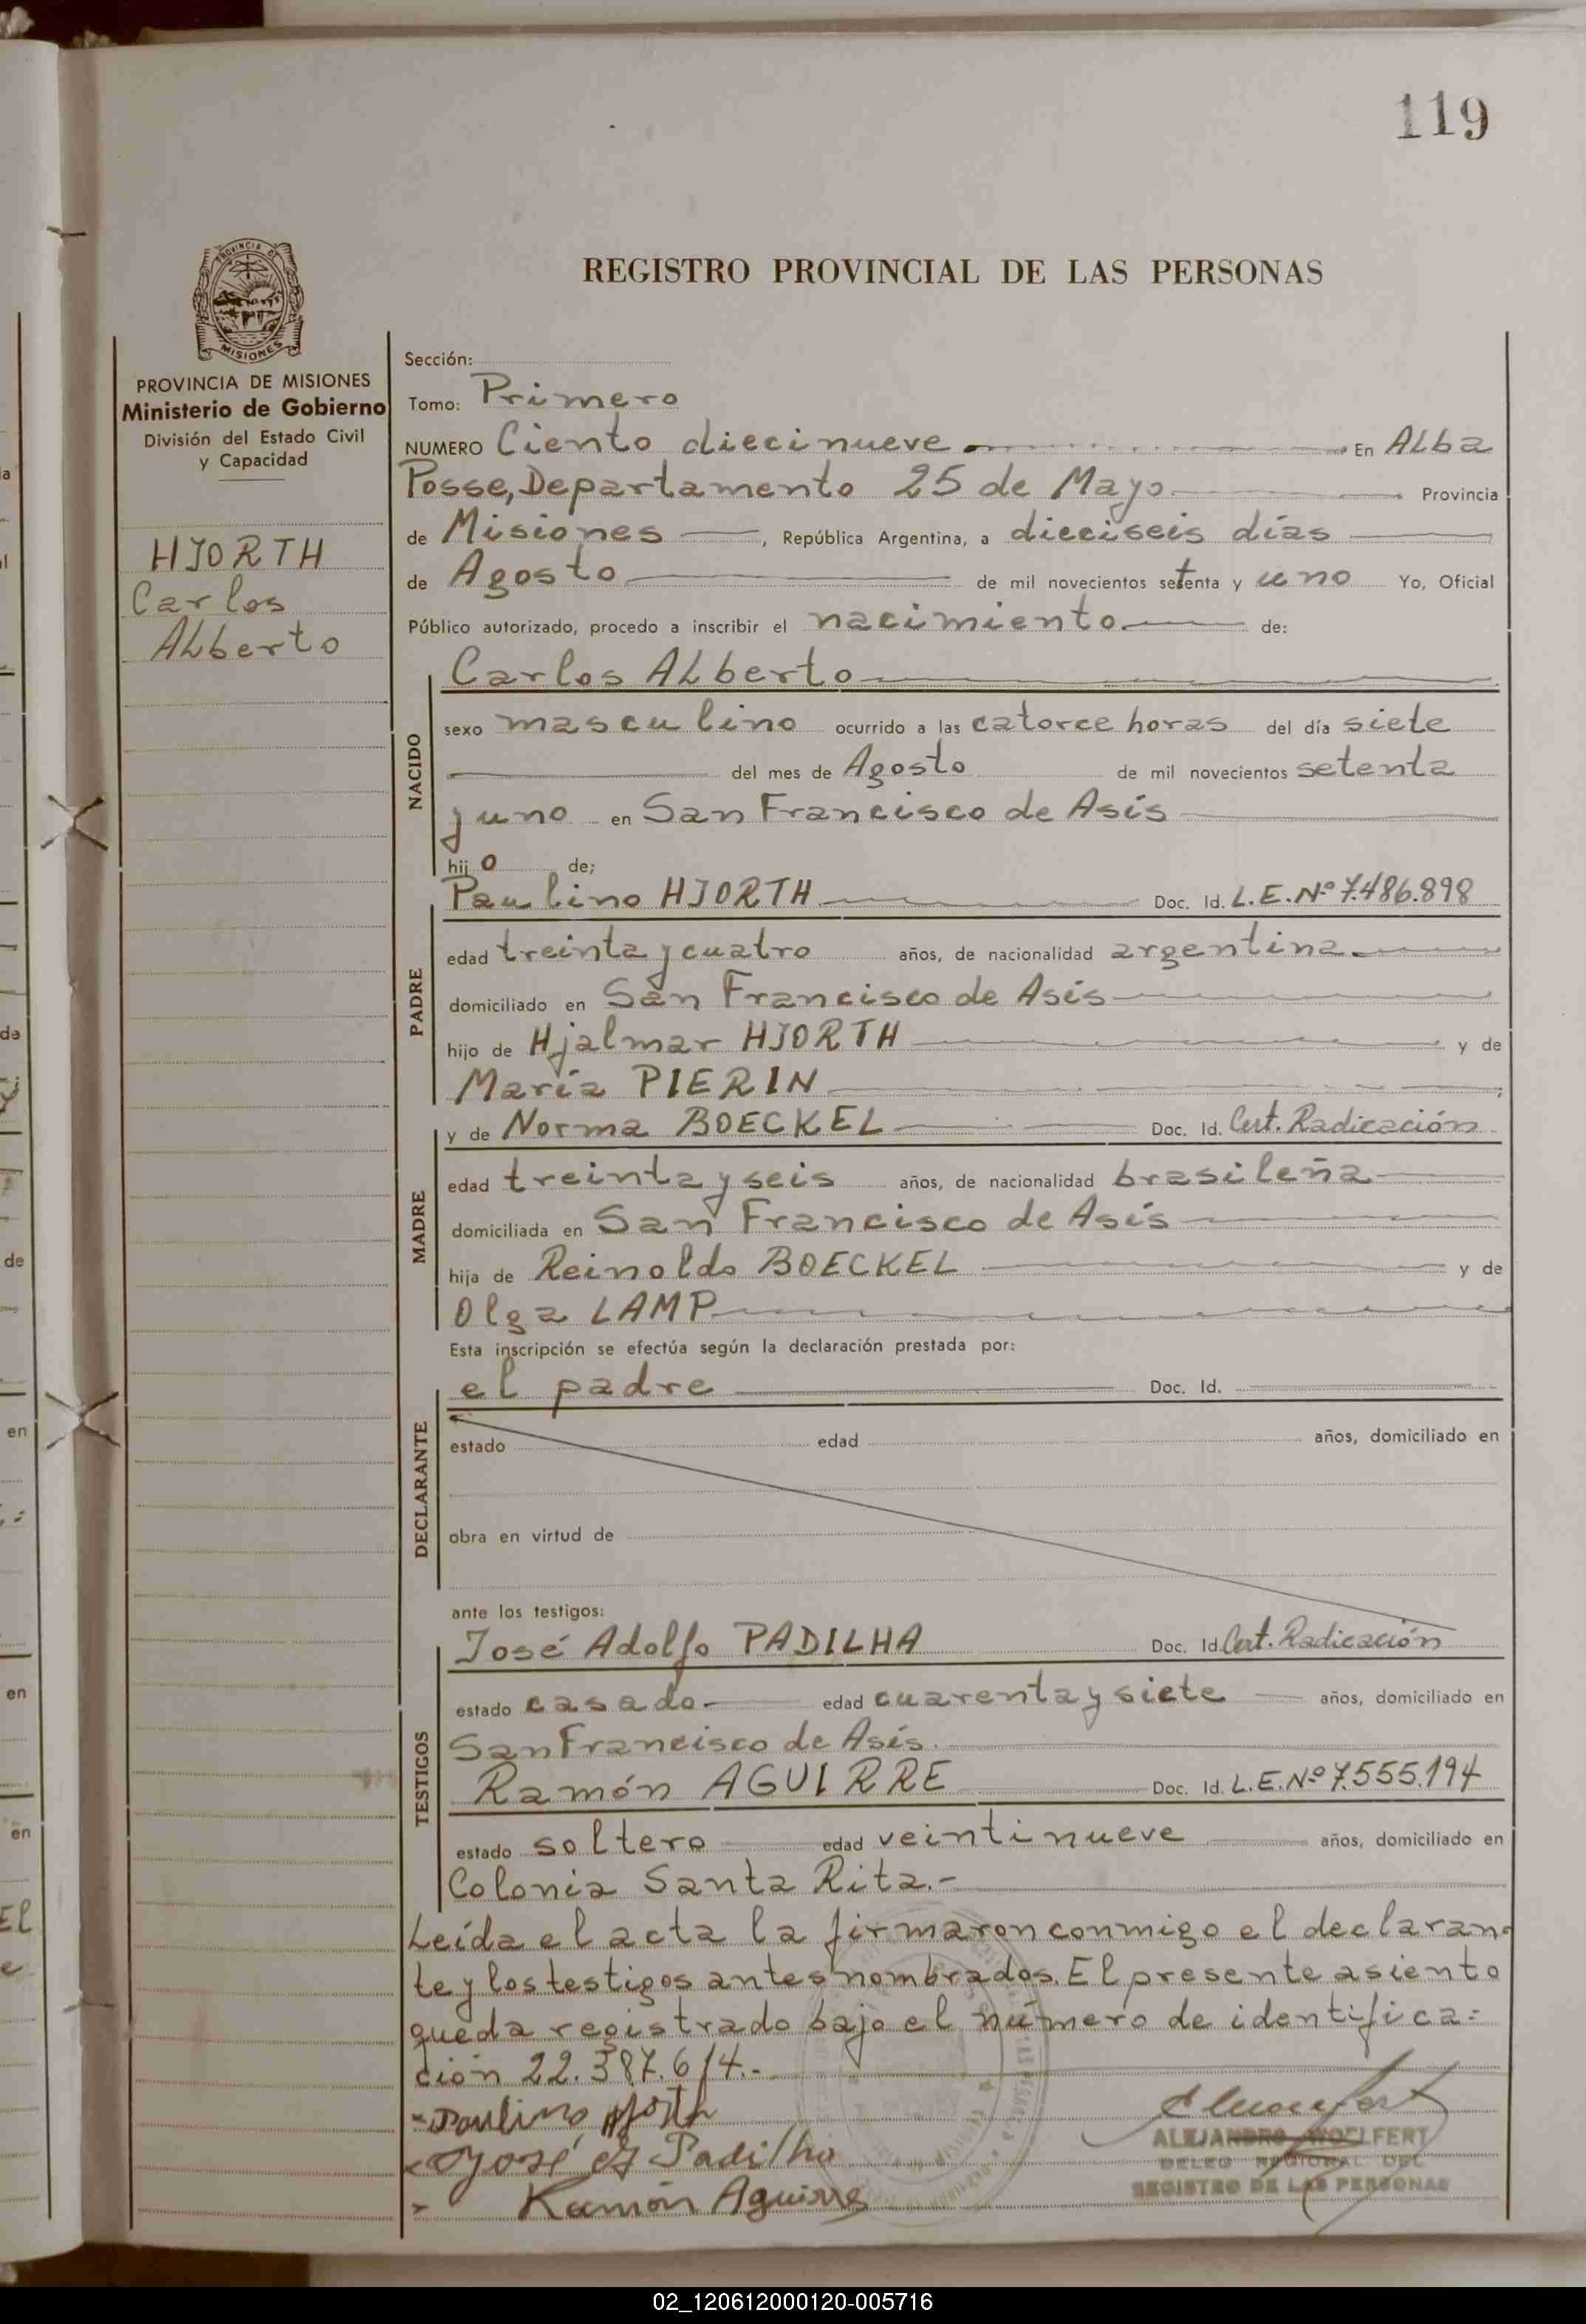 119
REGISTRO PROVINCIAL DE LAS PERSONAS
PROVINCIA DE MISIONES
Ministerio de Gobierno
División del Estado Civil
y Capacidad
HJORTH
Carlos
Alberto
Sección:
Tomo: Primero
NUMERO Ciento diecinueve En Alba
Posse, Departamento 25 de Mayo Provincia
de Misiones , República Argentina, a dieciseis días
de Agosto de mil novecientos setenta y uno Yo, Oficial
Público autorizado, procedo a inscribir el nacimiento de:
NACIDO
Carlos Alberto
sexo masculino ocurrido a las catorce horas del día siete
del mes de Agosto de mil novecientos setenta
y uno en San Francisco de Asís
hijo de;
PADRE
Paulino HJORTH Doc. Id. L.E.Nº 7.486.898
edad treinta y cuatro años, de nacionalidad argentina
domiciliado en San Francisco de Asís
hijo de Hjalmar HJORTH y de
María PIERIN
MADRE
y de Norma BOECKEL Doc. Id. Cert. Radicación
edad treinta y seis años, de nacionalidad brasileña
domiciliada en San Francisco de Asís
hija de Reinoldo BOECKEL y de
Olga LAMP
Esta inscripción se efectúa según la declaración prestada por:
DECLARANTE
el padre Doc. Id.
estado edad años, domiciliado en
obra en virtud de
ante los testigos:
TESTIGOS
José Adolfo PADILHA Doc. Id. Cert. Radicación
estado casado.- edad cuarenta y siete años, domiciliado en
San Francisco de Asís.
Ramón AGUIRRE Doc. Id. L.E.Nº 7.555.194
estado soltero edad veintinueve años, domiciliado en
Colonia Santa Rita.-
Leída el acta la firmaron conmigo el declaran-
te y los testigos antes nombrados. El presente asiento
queda registrado bajo el número de identifica=
ción 22.387.614.-
Paulino Hjorth
José A Padilha
Ramón Aguirre
ALEJANDRO WOELFERT
DELEG REGIONAL DEL
REGISTRO DE LAS PERSONAS
02_120612000120-005716